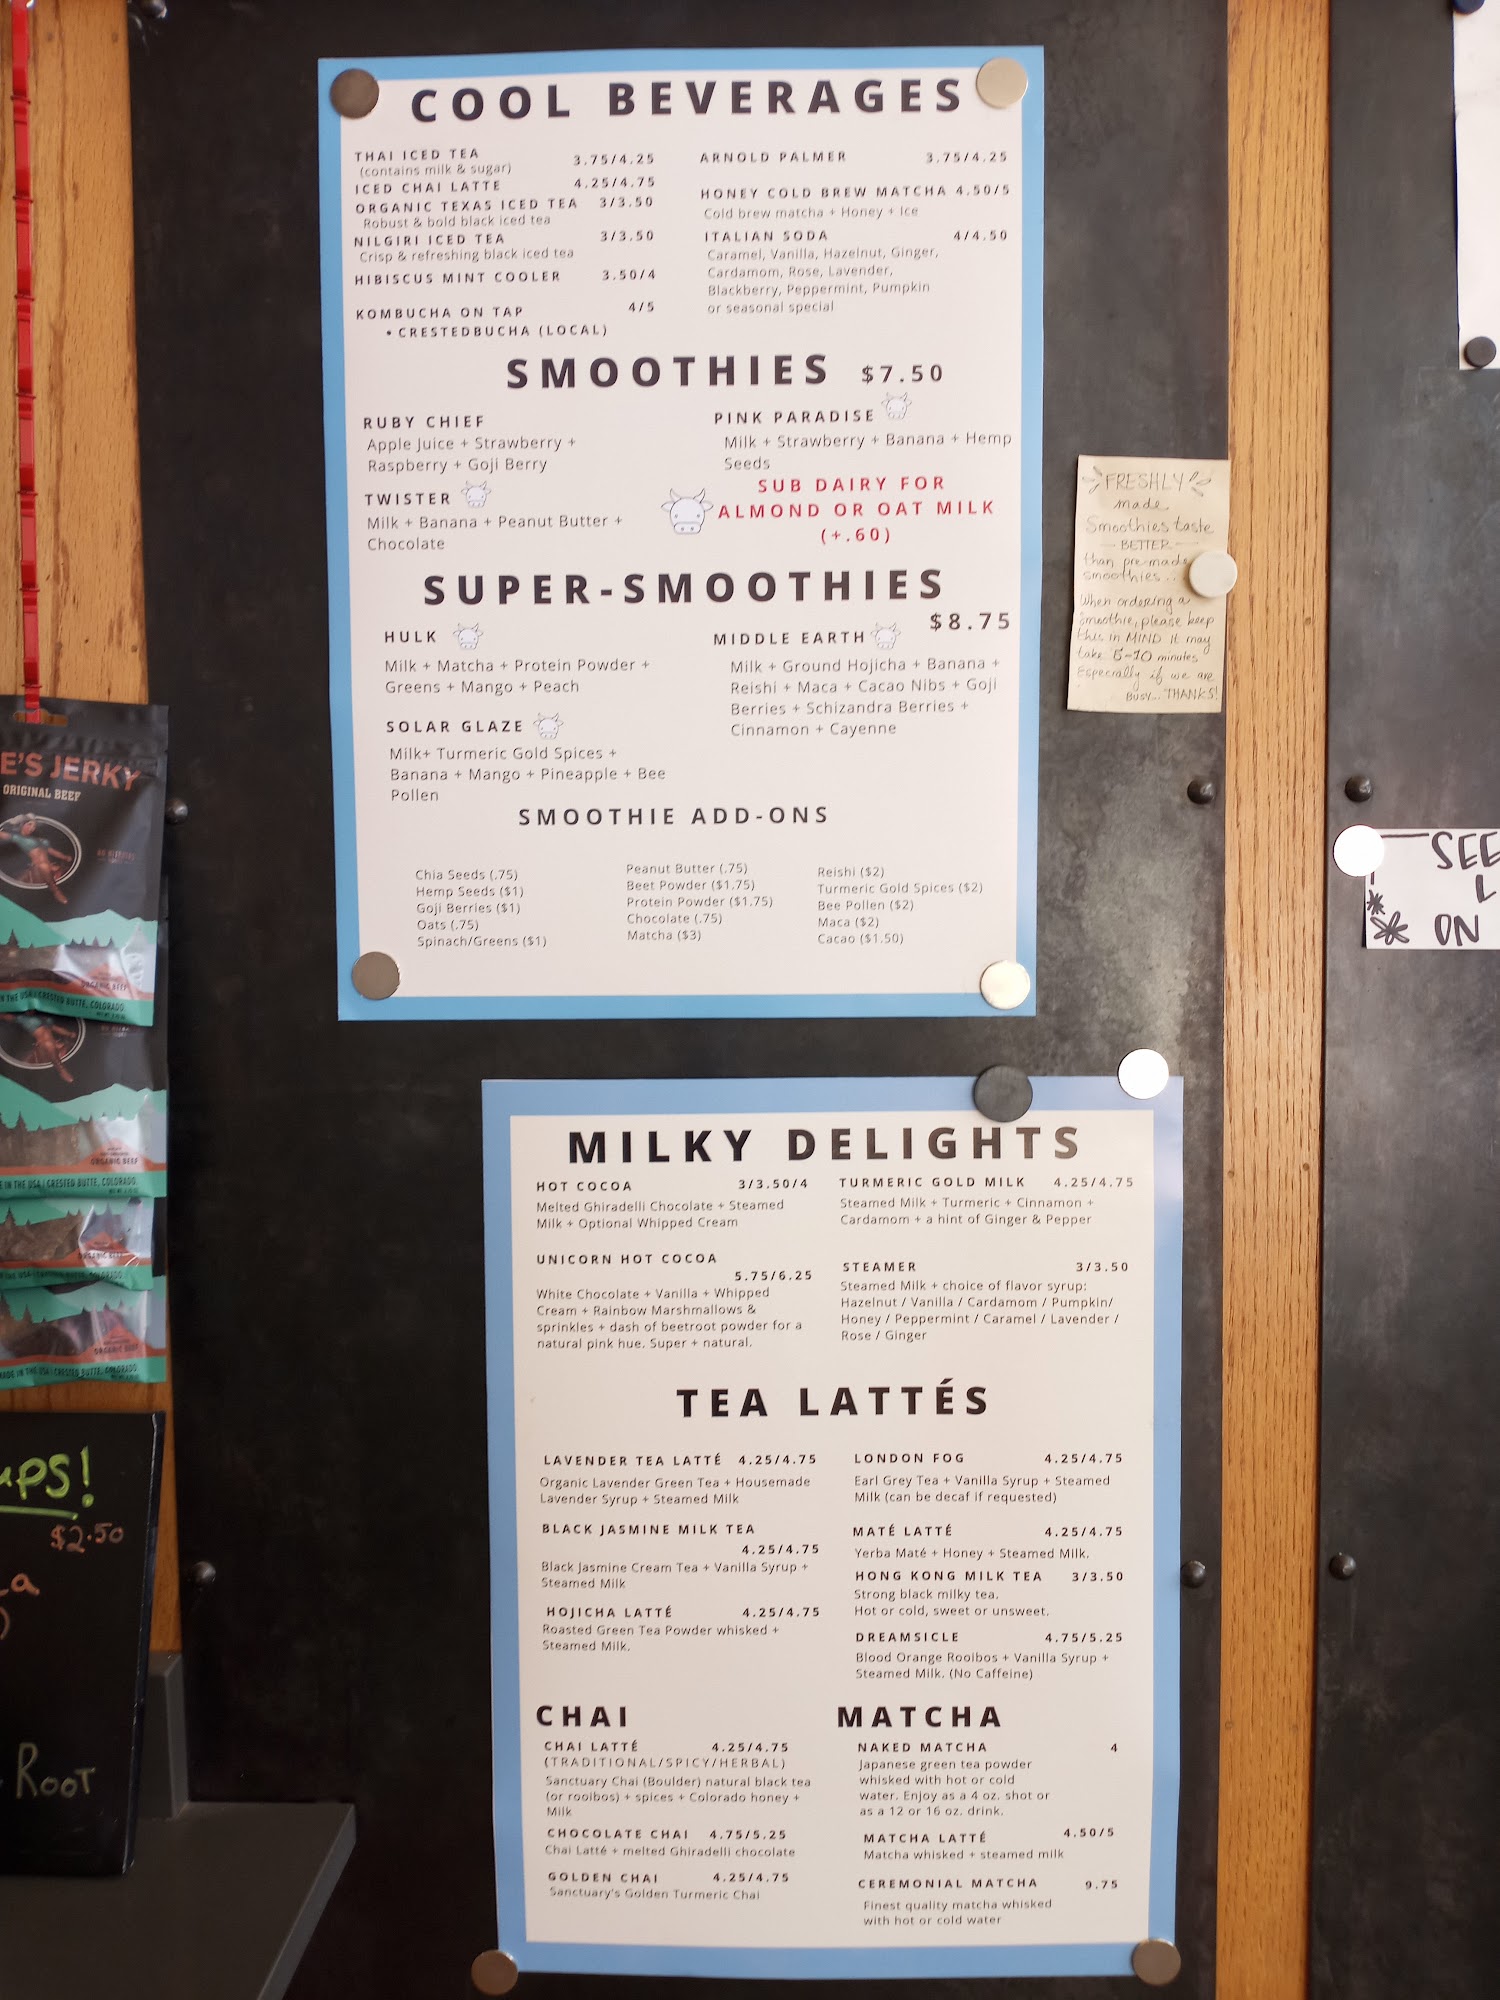 COOL BEVERAGES
THAI ICED TEA 3.75/4.25
(contains milk & sugar)
ICED CHAI LATTE 4.25/4.75
ORGANIC TEXAS ICED TEA 3/3.50
Robust & bold black iced tea
NILGIRI ICED TEA 3/3.50
Crisp & refreshing black iced tea
HIBISCUS MINT COOLER 3.50/4
KOMBUCHA ON TAP 4/5
• CRESTEDBUCHA (LOCAL)
ARNOLD PALMER 3.75/4.25
HONEY COLD BREW MATCHA 4.50/5
Cold brew matcha + Honey + Ice
ITALIAN SODA 4/4.50
Caramel, Vanilla, Hazelnut, Ginger,
Cardamom, Rose, Lavender,
Blackberry, Peppermint, Pumpkin
or seasonal special
SMOOTHIES $7.50
RUBY CHIEF
Apple Juice + Strawberry +
Raspberry + Goji Berry
TWISTER
Milk + Banana + Peanut Butter +
Chocolate
PINK PARADISE
Milk + Strawberry + Banana + Hemp
Seeds
SUB DAIRY FOR
ALMOND OR OAT MILK
(+.60)
SUPER-SMOOTHIES
$8.75
HULK
Milk + Matcha + Protein Powder +
Greens + Mango + Peach
SOLAR GLAZE
Milk+ Turmeric Gold Spices +
Banana + Mango + Pineapple + Bee
Pollen
MIDDLE EARTH
Milk + Ground Hojicha + Banana +
Reishi + Maca + Cacao Nibs + Goji
Berries + Schizandra Berries +
Cinnamon + Cayenne
SMOOTHIE ADD-ONS
Chia Seeds (.75)
Hemp Seeds ($1)
Goji Berries ($1)
Oats (.75)
Spinach/Greens ($1)
Peanut Butter (.75)
Beet Powder ($1.75)
Protein Powder ($1.75)
Chocolate (.75)
Matcha ($3)
Reishi ($2)
Turmeric Gold Spices ($2)
Bee Pollen ($2)
Maca ($2)
Cacao ($1.50)
FRESHLY
made
Smoothies taste
BETTER
than pre-made
smoothies...
When ordering a
smoothie, please keep
this in MIND it may
take 5-10 minutes
Especially if we are
BUSY... THANKS!
SEE
L
ON
E'S JERKY
ORIGINAL BEEF
ORGANIC BEEF
IN THE USA | CRESTED BUTTE, COLORADO
ORGANIC BEEF
IN THE USA | CRESTED BUTTE, COLORADO
ORGANIC BEEF
ORGANIC BEEF
MADE IN THE USA | CRESTED BUTTE, COLORADO
ups!
$2.50
a
)
Root
MILKY DELIGHTS
HOT COCOA 3/3.50/4
Melted Ghiradelli Chocolate + Steamed
Milk + Optional Whipped Cream
UNICORN HOT COCOA
5.75/6.25
White Chocolate + Vanilla + Whipped
Cream + Rainbow Marshmallows &
sprinkles + dash of beetroot powder for a
natural pink hue. Super + natural.
TURMERIC GOLD MILK 4.25/4.75
Steamed Milk + Turmeric + Cinnamon +
Cardamom + a hint of Ginger & Pepper
STEAMER 3/3.50
Steamed Milk + choice of flavor syrup:
Hazelnut / Vanilla / Cardamom / Pumpkin/
Honey / Peppermint / Caramel / Lavender /
Rose / Ginger
TEA LATTÉS
LAVENDER TEA LATTÉ 4.25/4.75
Organic Lavender Green Tea + Housemade
Lavender Syrup + Steamed Milk
BLACK JASMINE MILK TEA
4.25/4.75
Black Jasmine Cream Tea + Vanilla Syrup +
Steamed Milk
HOJICHA LATTÉ 4.25/4.75
Roasted Green Tea Powder whisked +
Steamed Milk.
LONDON FOG 4.25/4.75
Earl Grey Tea + Vanilla Syrup + Steamed
Milk (can be decaf if requested)
MATÉ LATTÉ 4.25/4.75
Yerba Maté + Honey + Steamed Milk.
HONG KONG MILK TEA 3/3.50
Strong black milky tea.
Hot or cold, sweet or unsweet.
DREAMSICLE 4.75/5.25
Blood Orange Rooibos + Vanilla Syrup +
Steamed Milk. (No Caffeine)
CHAI
CHAI LATTÉ 4.25/4.75
(TRADITIONAL/SPICY/HERBAL)
Sanctuary Chai (Boulder) natural black tea
(or rooibos) + spices + Colorado honey +
Milk
CHOCOLATE CHAI 4.75/5.25
Chai Latté + melted Ghiradelli chocolate
GOLDEN CHAI 4.25/4.75
Sanctuary's Golden Turmeric Chai
MATCHA
NAKED MATCHA 4
Japanese green tea powder
whisked with hot or cold
water. Enjoy as a 4 oz. shot or
as a 12 or 16 oz. drink.
MATCHA LATTÉ 4.50/5
Matcha whisked + steamed milk
CEREMONIAL MATCHA 9.75
Finest quality matcha whisked
with hot or cold water